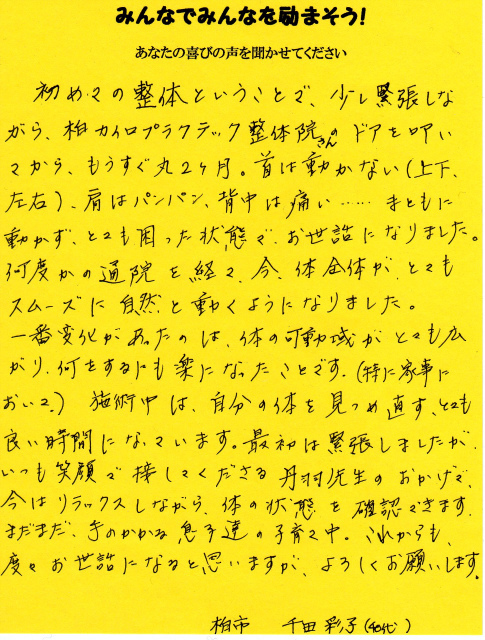 みんなでみんなを励まそう！
あなたの喜びの声を聞かせてください
初めての整体ということで、少し緊張しな
がら、柏カイロプラクテック整体院さんのドアを叩い
てから、もうすぐ丸2ヶ月。首は動かない（上下、
左右）、肩はパンパン、背中は痛い……まともに
動かず、とても困った状態で、お世話になりました。
何度かの通院を経て、今、体全体が、とても
スムーズに自然と動くようになりました。
一番変化があったのは、体の可動域がとても広
がり、何をするにも楽になったことです。（特に家事に
おいて。）施術中は、自分の体を見つめ直す、とても
良い時間になっています。最初は緊張しましたが、
いつも笑顔で接してくださる丹羽先生のおかげで、
今はリラックスしながら、体の状態を確認できます。
まだまだ、手のかかる息子達の子育て中。これからも、
度々お世話になると思いますが、よろしくお願いします。
柏市 千田彩子（40代）